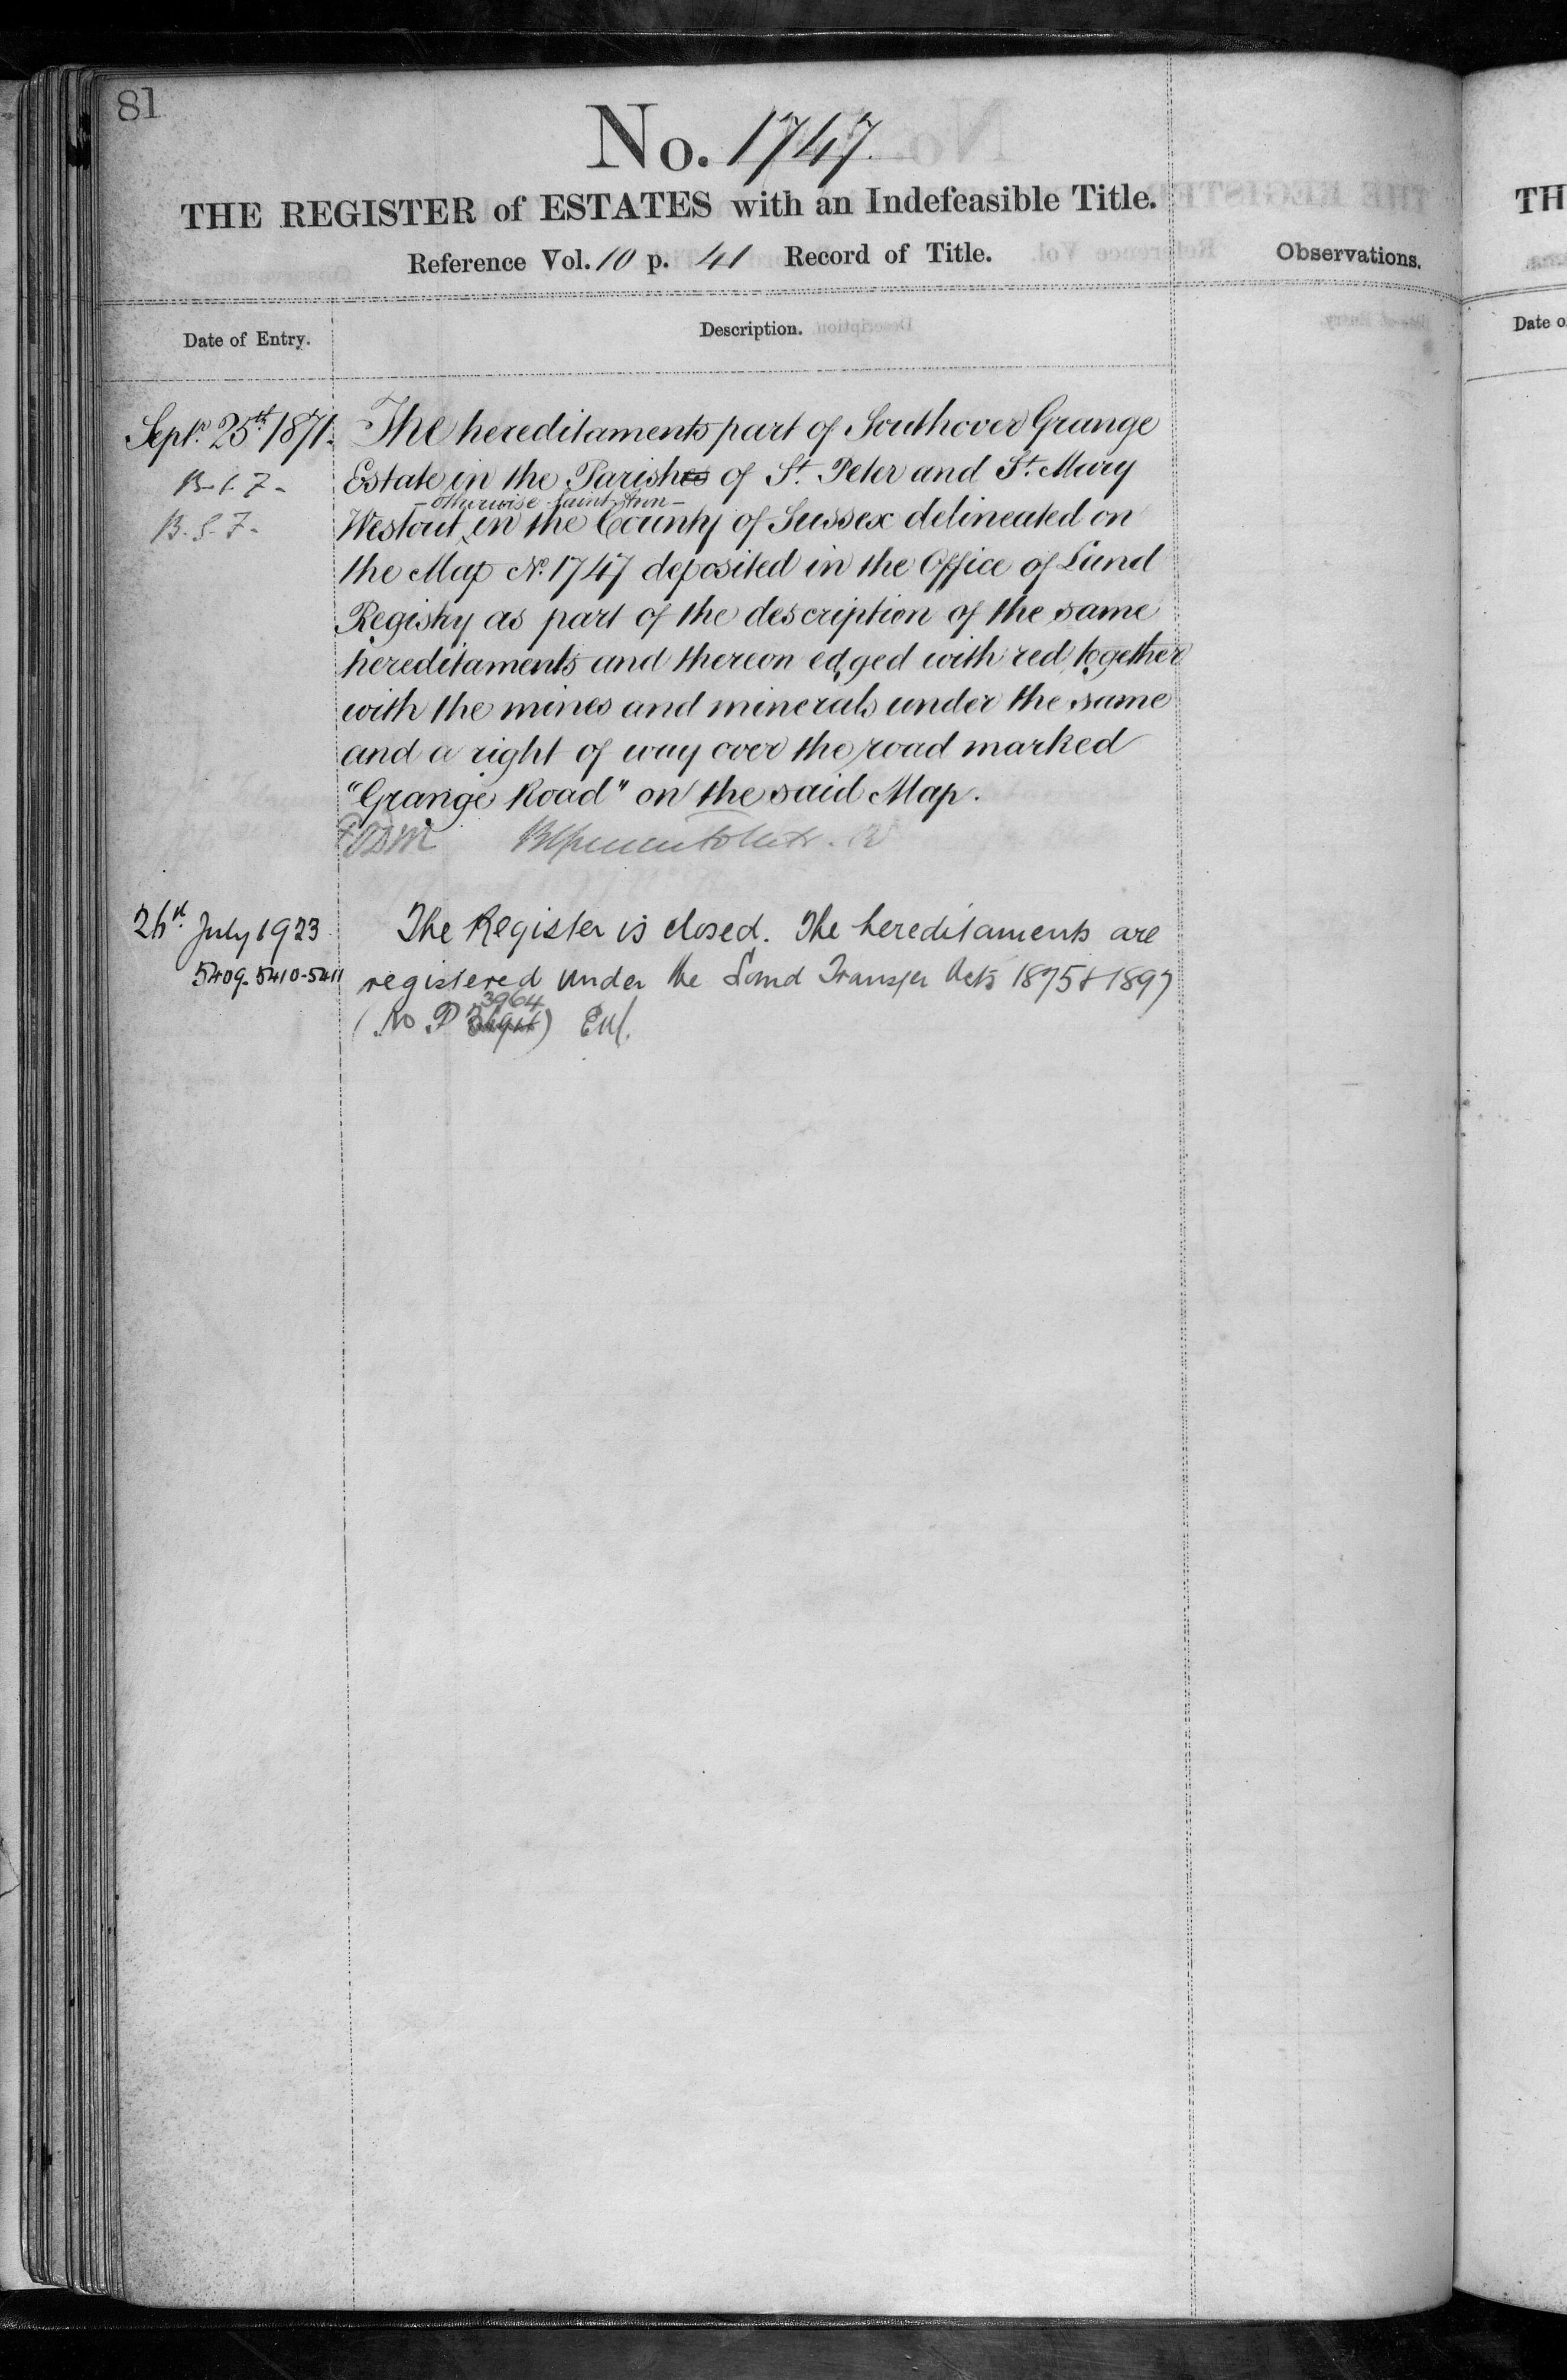 81
No. 1747.
THE REGISTER of ESTATES with an Indefeasible Title.
Reference Vol. 10 p. 41 Record of Title.
Observations.
Date of Entry.
Description.
Septr. 25th. 1871. The hereditaments part of Southover Grange
Estate in the Parishes of St. Peter and St. Mary
- otherwise Saint Ann -
Westout in the County of Sussex delineated on
B.S.F.
the Map No. 1747 deposited in the Office of Land
Registry as part of the description of the same
hereditaments and thereon edged with red together
with the mines and minerals under the same
and a right of way over the road marked
"Grange Road" on the said Map.
26th. July 1923 The Register is closed. The hereditaments are
5409. 5410-5411 registered under the Land Transfer Acts 1875 & 1897
3964
(No P )
TH
Date o